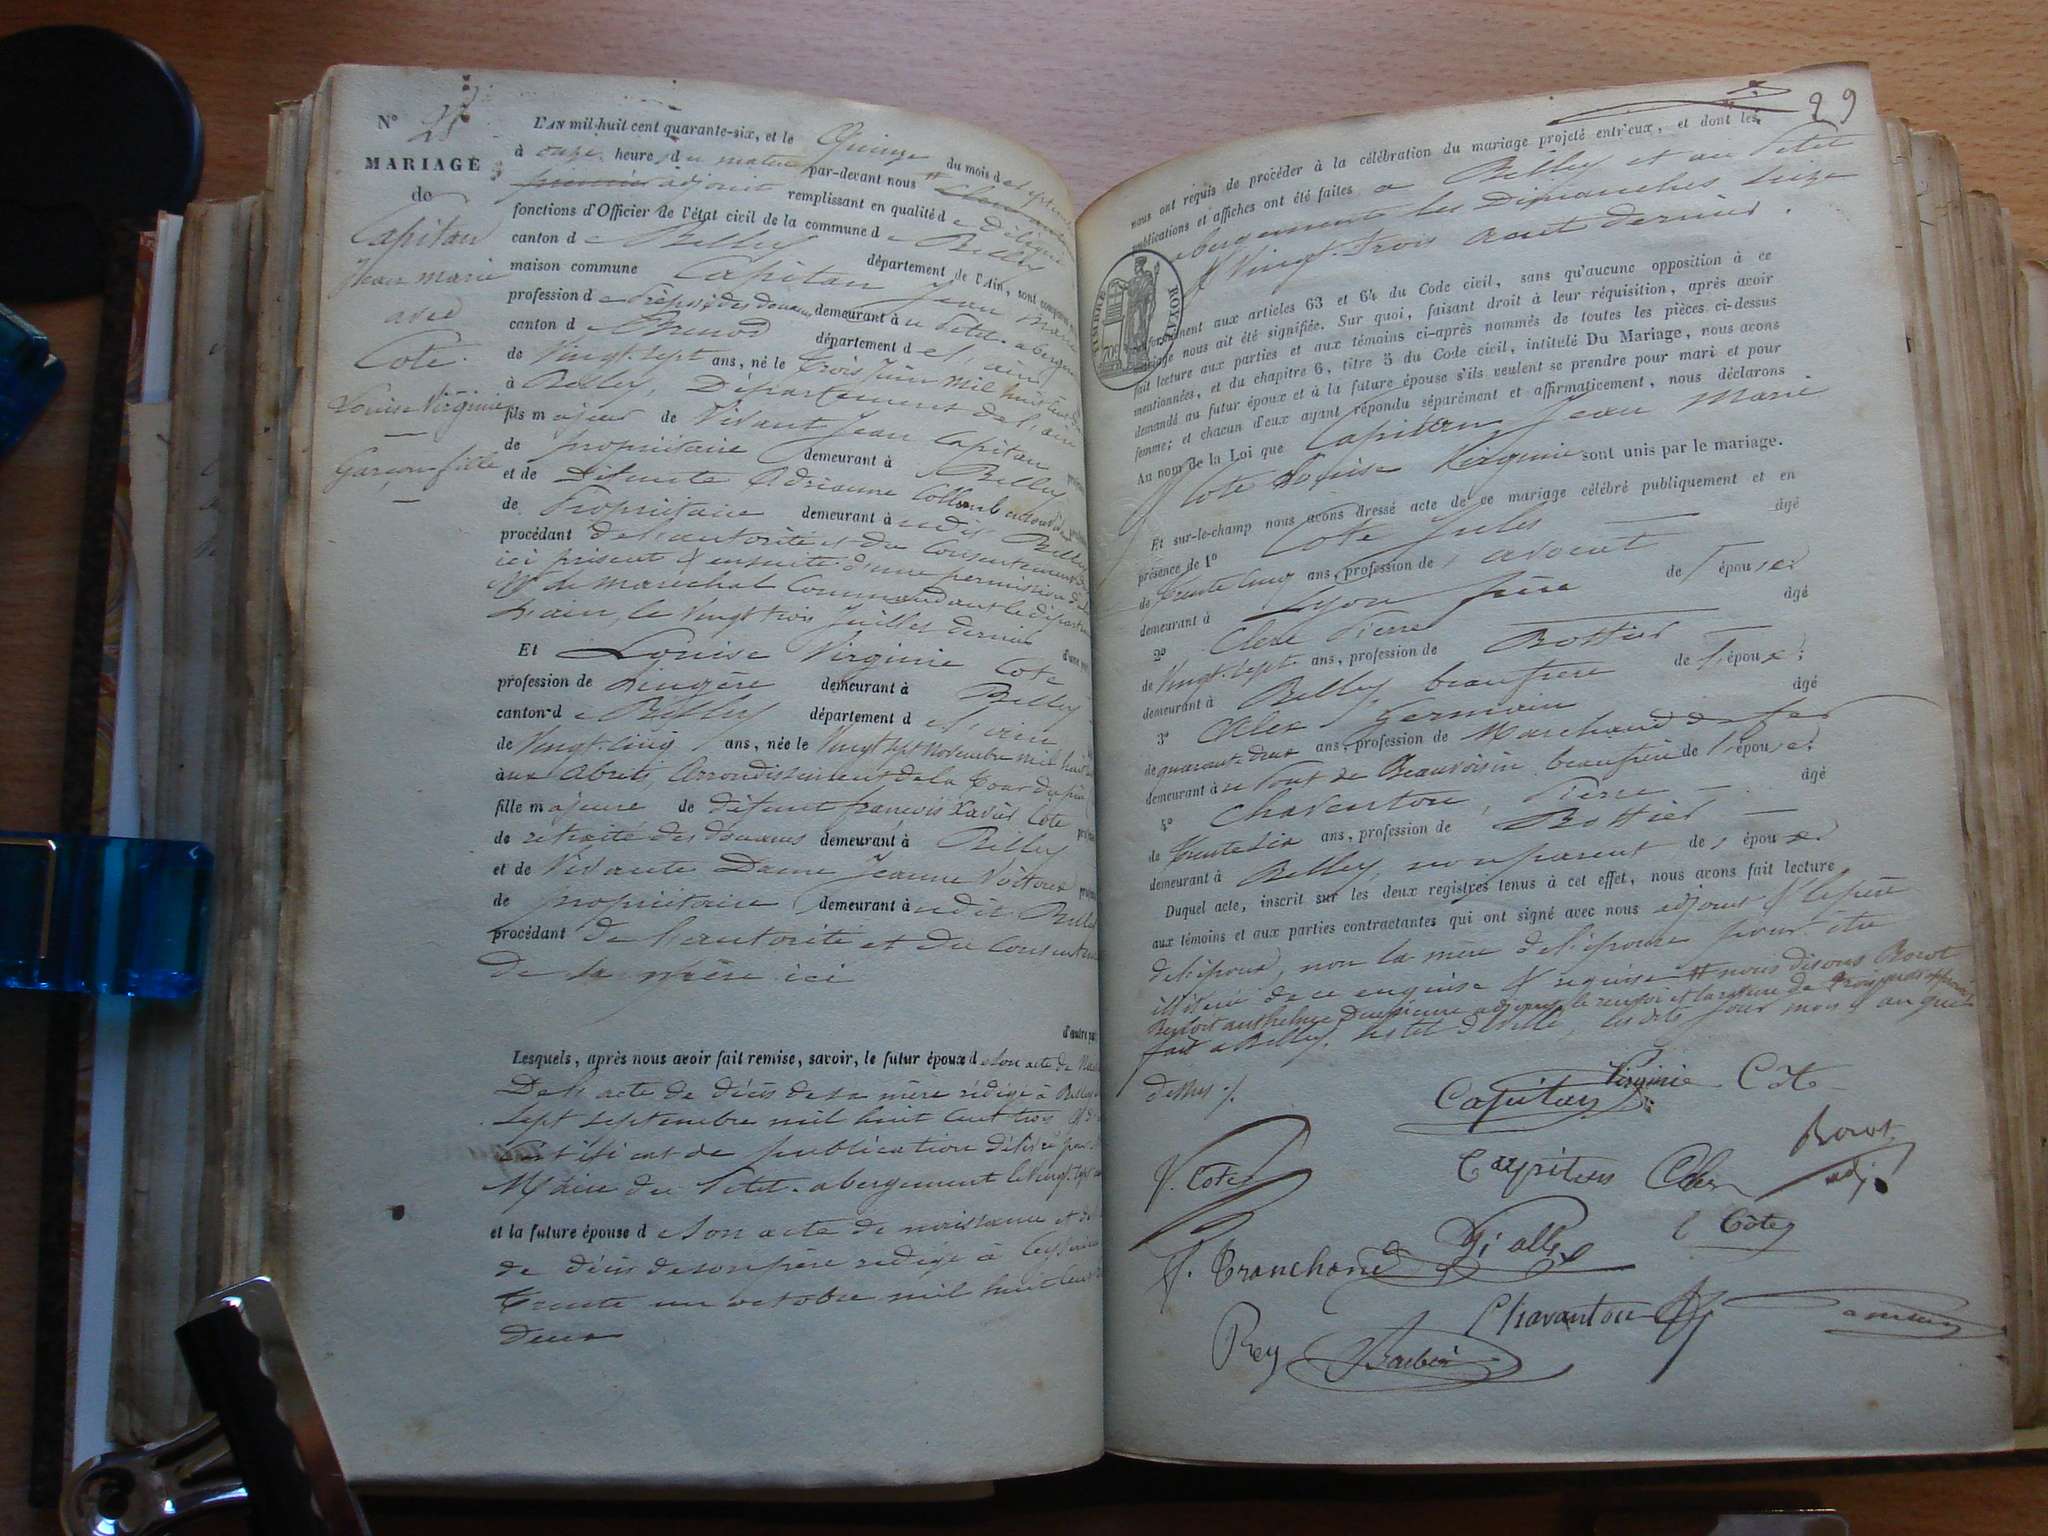 N° 25
MARIAGE
de
Capitan
Jean marie
avec
Cote
Louise Virginie
Garçon fille
L'AN mil-huit cent quarante-six, et le Quinze du mois de septembre
à onze heure du matin par-devant nous
premier adjoint remplissant en qualité de délégué
fonctions d'Officier de l'état civil de la commune de Belley
canton de Belley département de l'Ain, sont comparus
maison commune Capitan Jean Marie
profession de Préposé des douanes demeurant à u Petit-abergement
canton de département de l'ain
de Vingt-sept ans, né le trois Juin mil huit cent
à Belley, Département de l'ain
fils majeur de Vivant Jean Capitan
de propriétaire demeurant à Belley
et de Défunte Adrianne
de Propriétaire demeurant à udit Belley
procédant de l'autorité et du Consentement
ici présent & ensuite d'une permission de
Mr de Maréchal Commandant le départ
L'ain, le Vingt trois Juillet dernier
d'une part
Et Louise Virginie Cote
profession de Lingère demeurant à Belley
canton de Belley département de l'ain
de Vingt-cinq ans, née le Vingt sept novembre mil huit
aux Abrets, Arrondissement de la Tour du pin
fille majeure de défunt françois Xavier Cote
de retraité des douanes demeurant à Belley
et de Vivante Dame Jeanne
de propriétaire demeurant à udit Belley
procédant de l'autorité et du Consentem
De sa mère ici
d'autre part
Lesquels, après nous avoir fait remise, savoir, le futur époux de son acte de
De l'acte de décès de sa mère rédigé à Belley
sept septembre mil huit cent trois
Certificat de publication délivré par
Maire du Petit-abergement le vingt
et la future épouse de son acte de naissance et de
de décès de son père rédigé à
trente un octobre mil huit cent
deux
29
nous ont requis de procéder à la célébration du mariage projeté entr'eux, et dont les
publications et affiches ont été faites à Belley et au Petit
abergement les Dimanches Seize
& Vingt-trois aout dernier.
TIMBRE ROYAL
70c
conformément aux articles 63 et 64 du Code civil, sans qu'aucune opposition à ce
mariage nous ait été signifiée. Sur quoi, faisant droit à leur réquisition, après avoir
fait lecture aux parties et aux témoins ci-après nommés de toutes les pièces ci-dessus
mentionnées, et du chapitre 6, titre 5 du Code civil, intitulé Du Mariage, nous avons
demandé au futur époux et à la future épouse s'ils veulent se prendre pour mari et pour
femme; et chacun d'eux ayant répondu séparément et affirmativement, nous déclarons
Au nom de la Loi que Capitan Jean Marie
& Cote Louise Virginie sont unis par le mariage.
Et sur-le-champ nous avons dressé acte de ce mariage célébré publiquement et en
présence de 1° Cote Jules âgé
de trente cinq ans, profession de avocat
demeurant à Lyon frère de l'épouse
2° Clerc Pierre âgé
de Vingt-sept ans, profession de Bottier
demeurant à Belley, beaufrère de l'époux;
3° Germain âgé
de quarante-deux ans, profession de Marchand de fer
demeurant à u Pont de Beauvoisin beaufrère de l'épouse;
4° Chavanton, Pierre âgé
de trente six ans, profession de Bottier
demeurant à Belley, non parent des époux
Duquel acte, inscrit sur les deux registres tenus à cet effet, nous avons fait lecture
aux témoins et aux parties contractantes qui ont signé avec nous adjoint & le père
de l'époux, non la mère de l'épouse pour être
illitéré de ce enquise & requise # nous disons Borot
Benoit anthelme Deuxième adjoint le renvoi et la rature de trois mots approuvés
fait à Belley, hotel de ville, les dits jour mois & an que
dessus ./.
Capitan Virginie Côte
J. Cote Capitan Clerc Borot adj.
F. Tranchand Vialle Côte
Chavanton
Rey Barbier